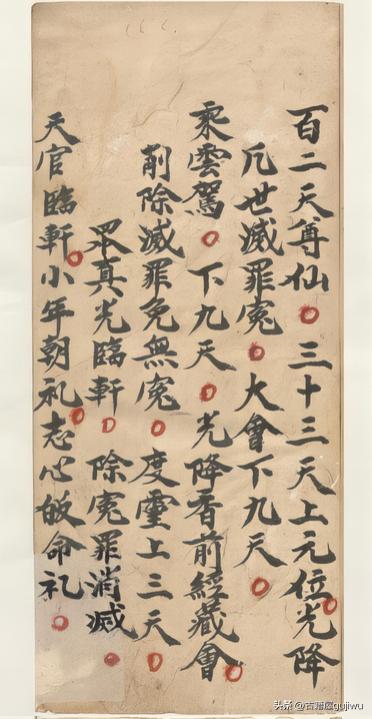 百二天尊仙○三十三天上元位光降
凡世滅罪寃○大會下九天○
乘雲駕○下九天○光降香前經藏會○
削除滅罪免無寃○度靈上三天○
眾真光臨軒○除寃罪消滅○
天官臨軒○小年朝礼○志心皈命礼○
头条 @古籍屋gujiwu